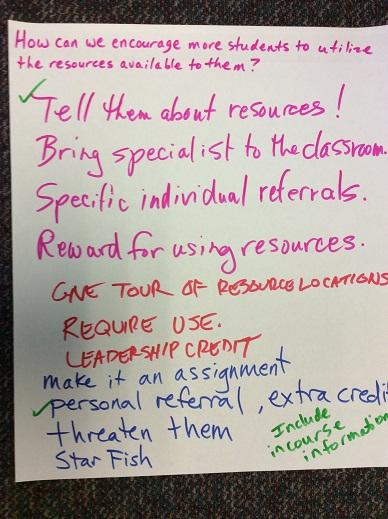 How can we encourage more students to utilize
the resources available to them?
Tell them about resources!
Bring specialist to the classroom.
Specific individual referrals.
Reward for using resources.
GIVE TOUR OF RESOURCE LOCATIONS
REQUIRE USE.
LEADERSHIP CREDIT
make it an assignment
personal referral, extra credit
threaten them
Star Fish
Include
in course
information